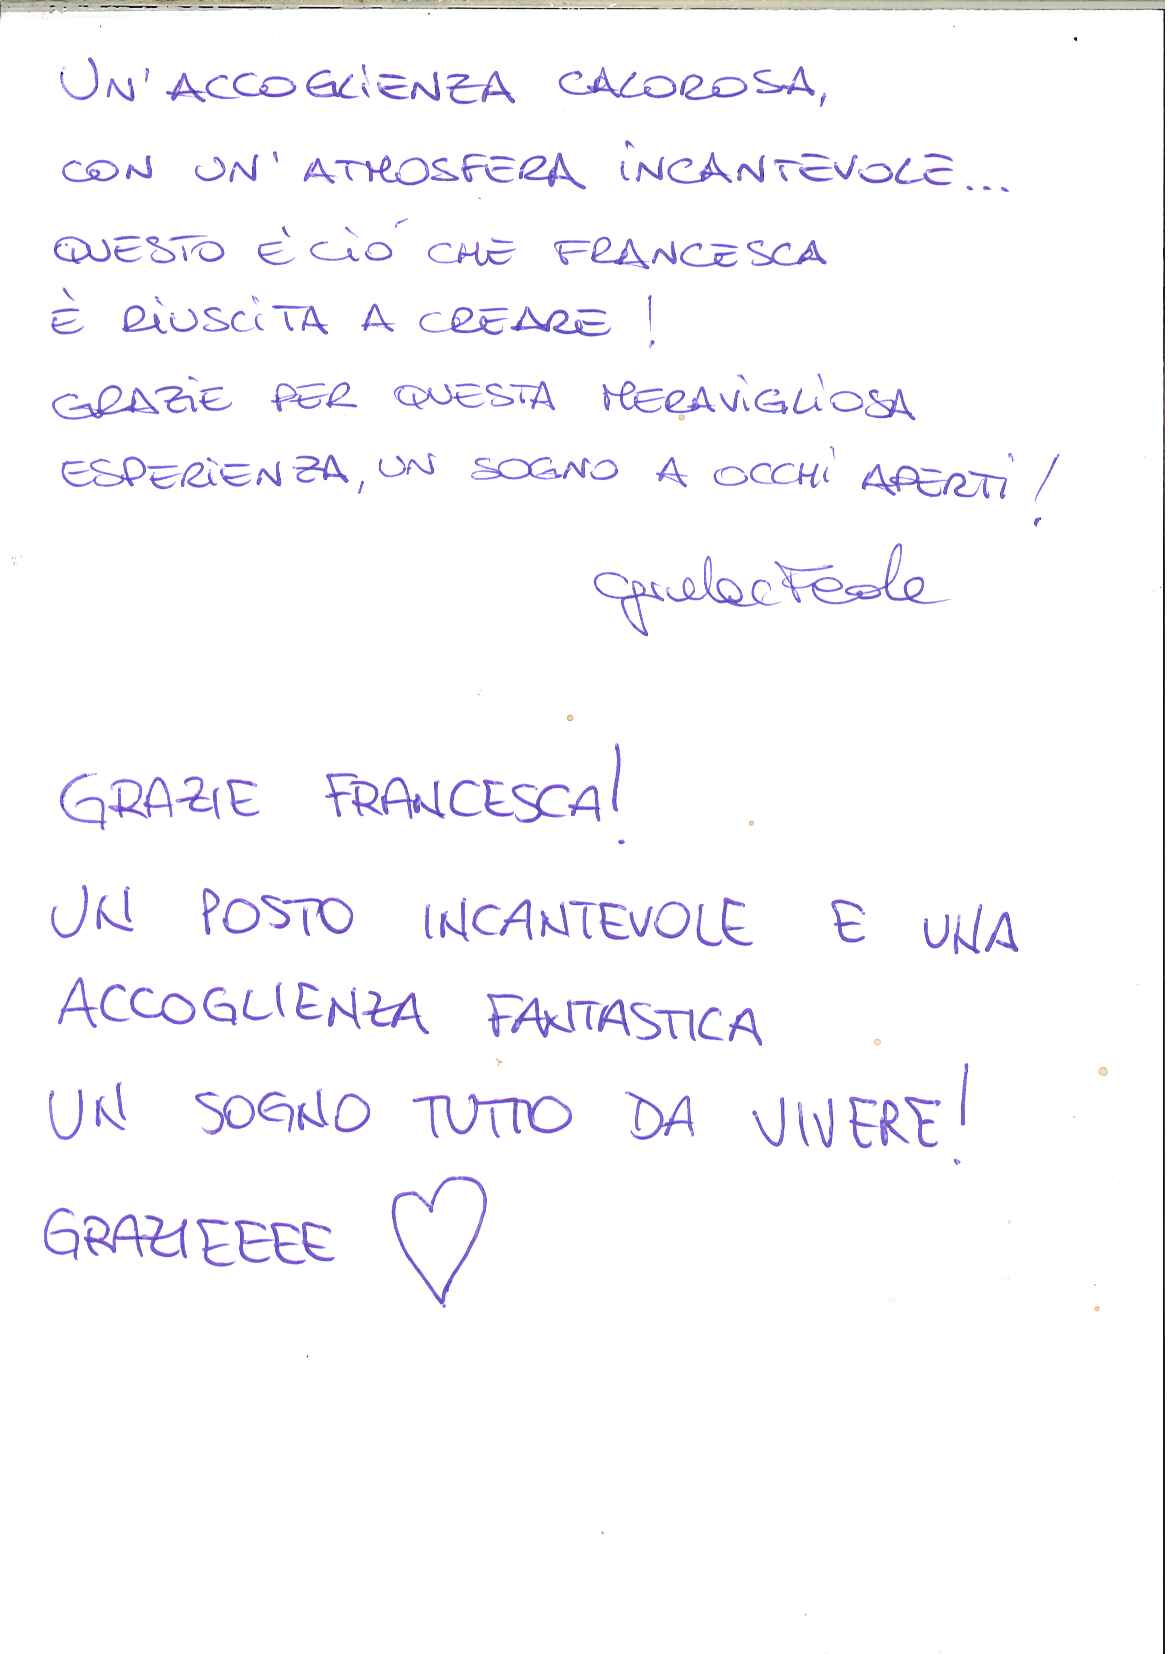 UN'ACCOGLIENZA CALOROSA,
CON UN'ATMOSFERA INCANTEVOLE...
QUESTO È CIÒ CHE FRANCESCA
È RIUSCITA A CREARE!
GRAZIE PER QUESTA MERAVIGLIOSA
ESPERIENZA, UN SOGNO A OCCHI APERTI!
GRAZIE FRANCESCA!
UN POSTO INCANTEVOLE E UNA
ACCOGLIENZA FANTASTICA
UN SOGNO TUTTO DA VIVERE!
GRAZIEEEE